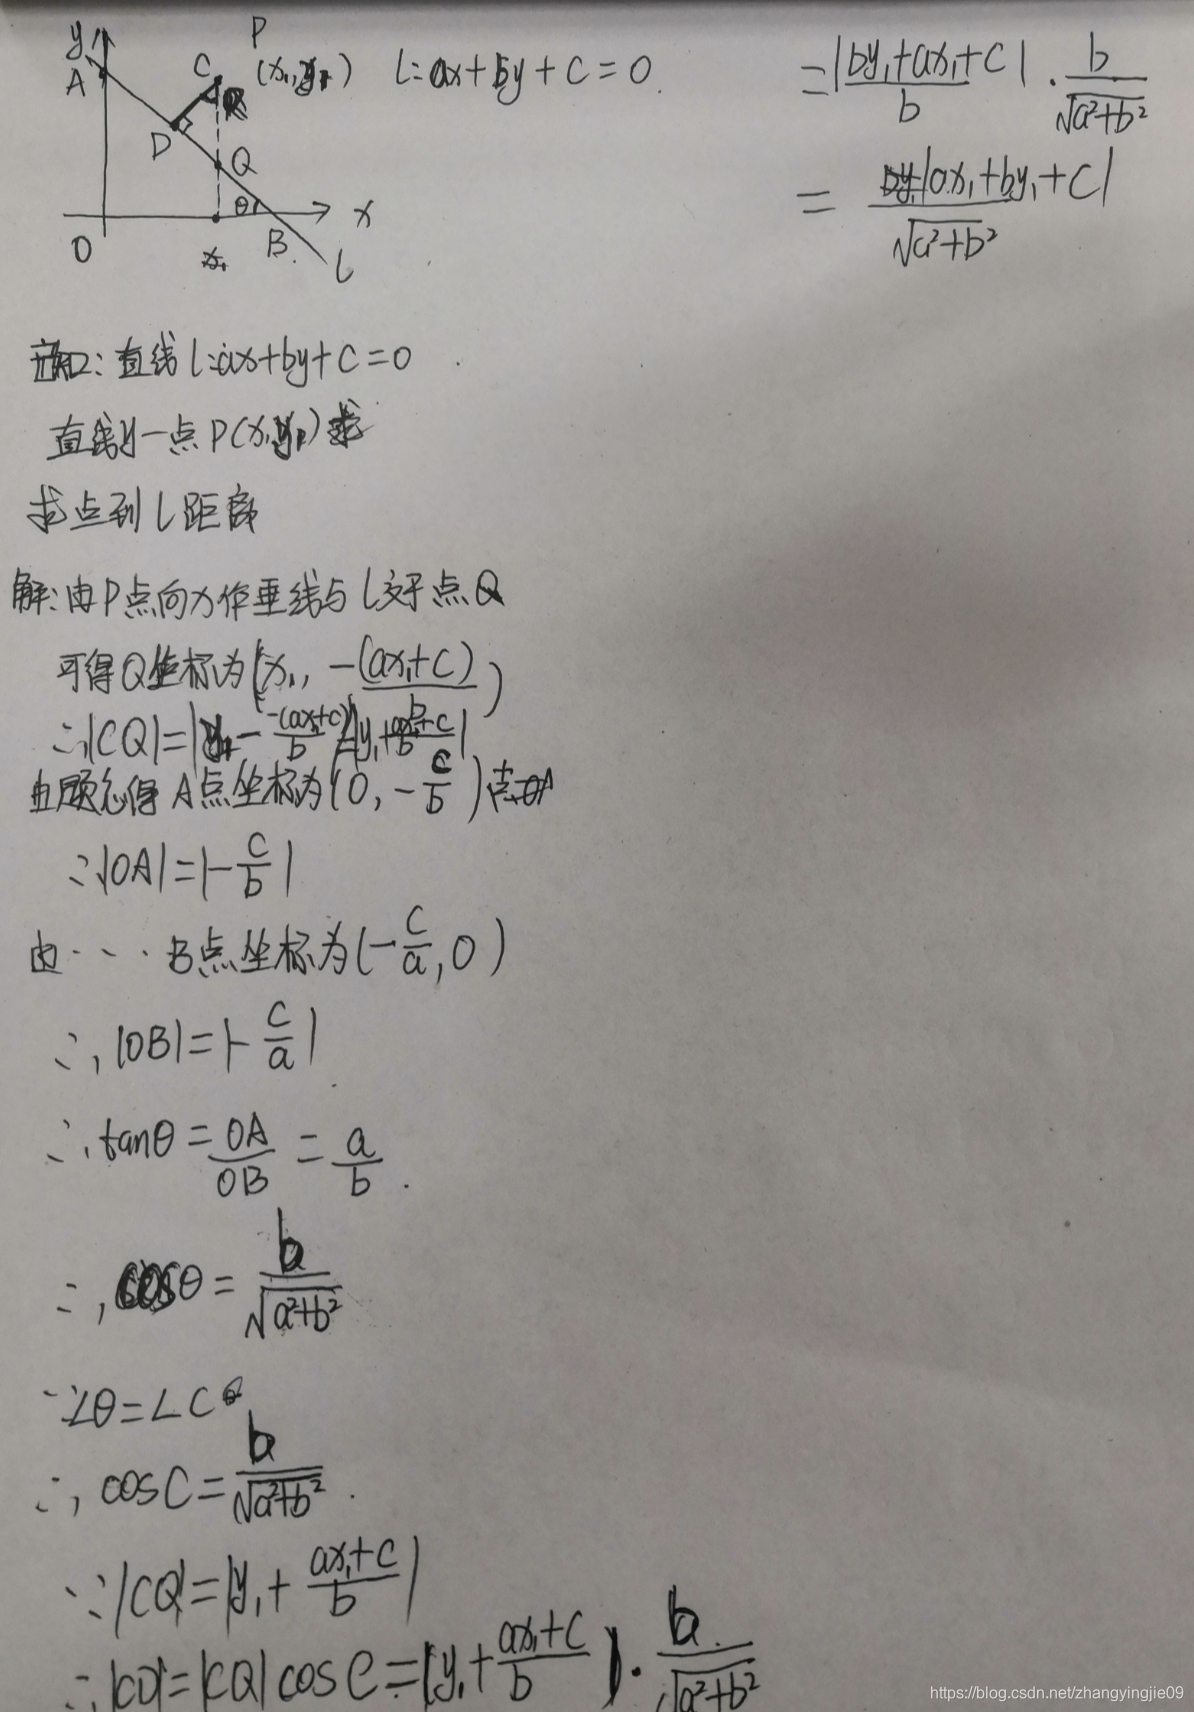 y
A
C
P
(x₁,y₁)
l:ax+by+C=0
D
Q
θ
O
x₁
B
x
l
=|by₁+ax₁+C|/b · b/√(a²+b²)
=|ax₁+by₁+C|/√(a²+b²)
直线l:ax+by+C=0
直线外一点P(x₁,y₁)
求点到l距离
解:由P点向x作垂线与l交于点Q
可得Q坐标为(x₁, -(ax₁+C)/b)
∴|CQ|=|y₁ - -(ax₁+C)/b|=|y₁+(ax₁+C)/b|
由题意得A点坐标为(0,-C/b)
∴|OA|=|-C/b|
由···B点坐标为(-C/a,0)
∴|OB|=|-C/a|
∴tanθ=OA/OB=a/b.
∴cosθ=b/√(a²+b²)
∵∠θ=∠C
∴cosC=b/√(a²+b²).
∵|CQ|=|y₁+(ax₁+C)/b|
∴|CD|=|CQ|cosC=|y₁+(ax₁+C)/b|·b/√(a²+b²)
https://blog.csdn.net/zhangyingjie09